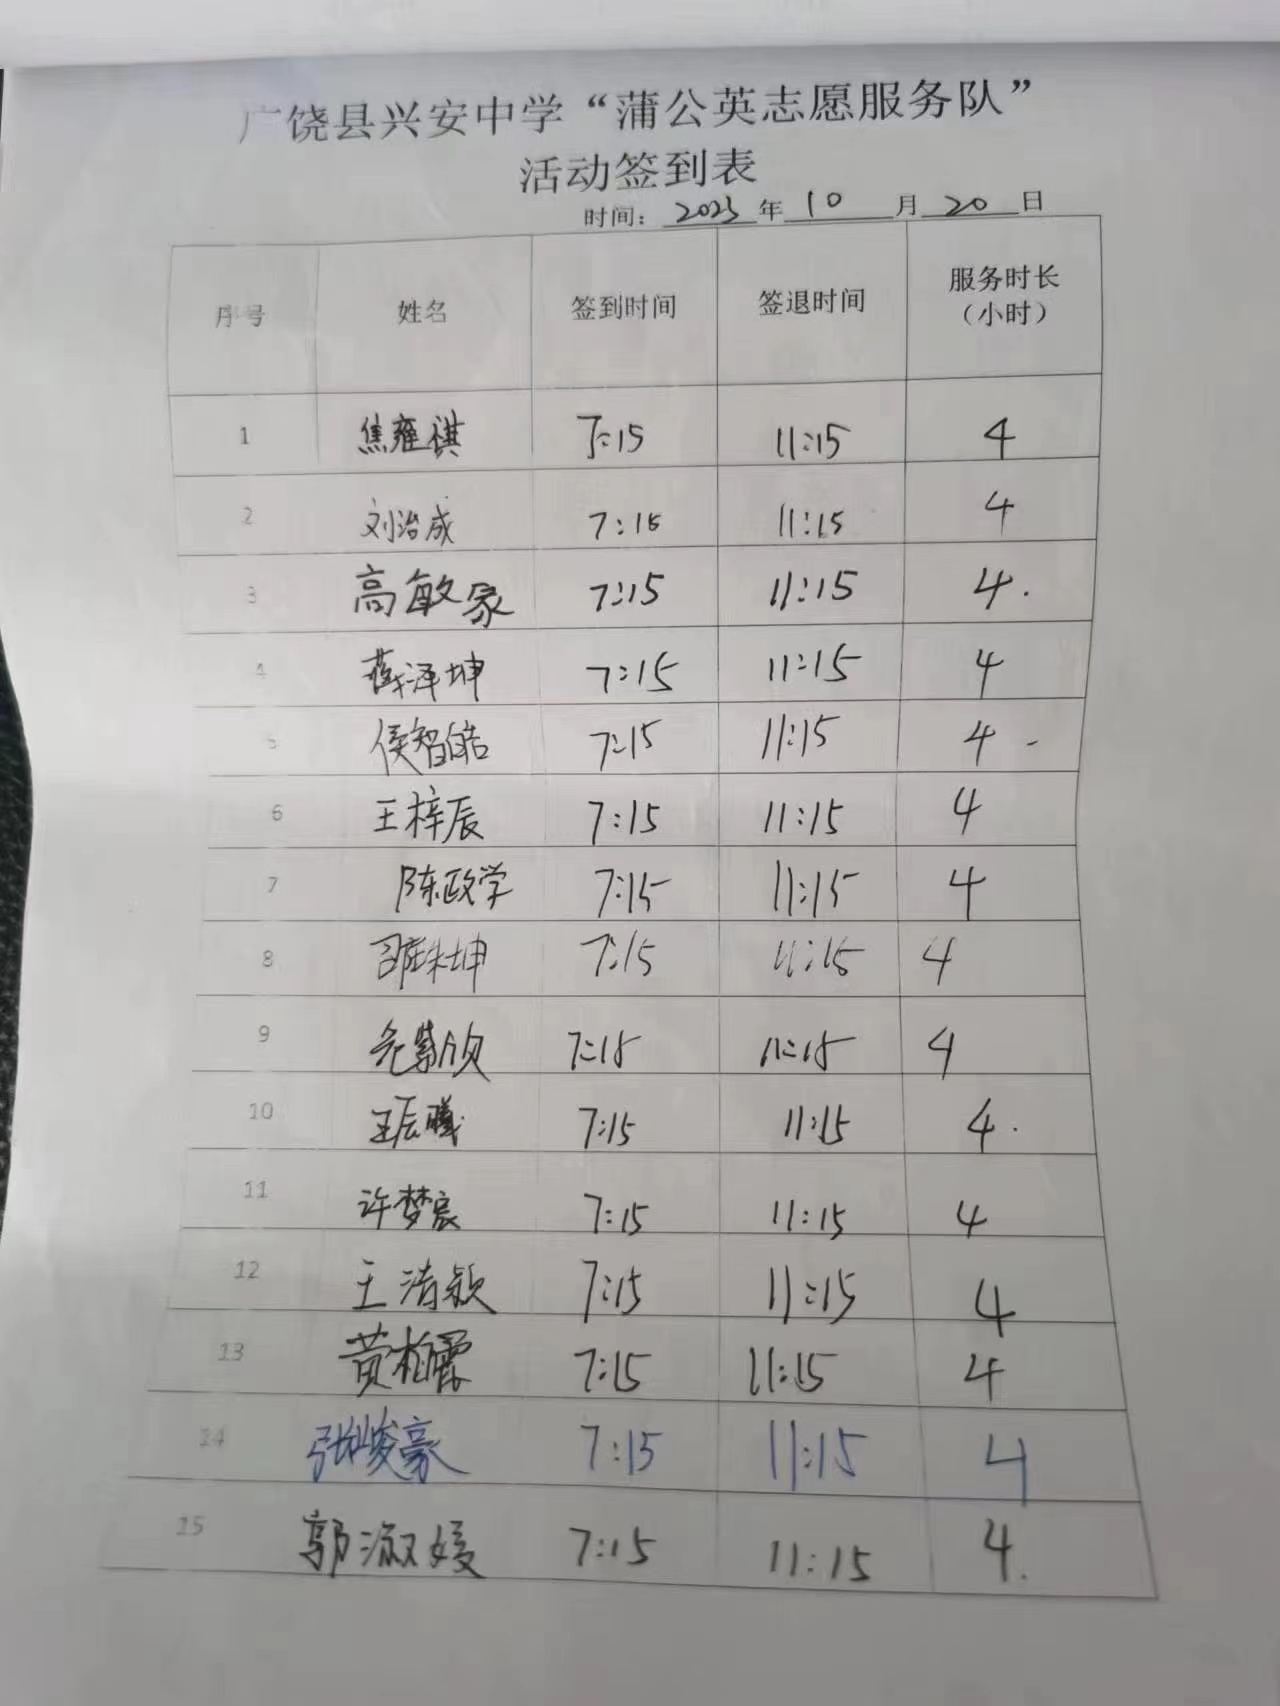 广饶县兴安中学“蒲公英志愿服务队”
活动签到表
时间：2023年10月20日
序号 姓名 签到时间 签退时间 服务时长（小时）
1 焦雍祺 7:15 11:15 4
2 刘治成 7:15 11:15 4
3 高敏家 7:15 11:15 4.
4 薛泽坤 7:15 11:15 4
5 侯智皓 7:15 11:15 4
6 王梓辰 7:15 11:15 4
7 陈政学 7:15 11:15 4
8 7:15 11:15 4
9 7:15 11:15 4
10 王辰曦 7:15 11:15 4.
11 许梦宸 7:15 11:15 4
12 王清颖 7:15 11:15 4
13 黄柏霖 7:15 11:15 4
14 张峻豪 7:15 11:15 4
15 郭淑媛 7:15 11:15 4.